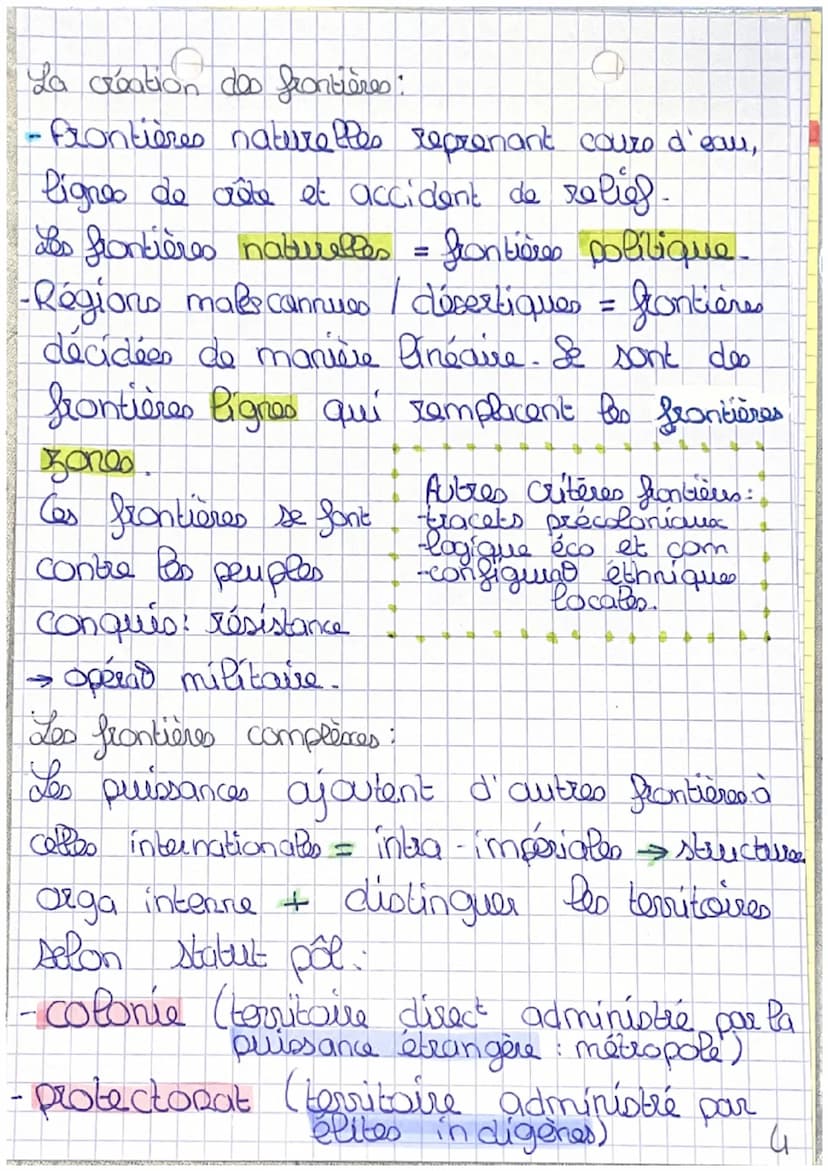 La création des frontières :
- frontières naturelles reprenant cours d'eau,
lignes de crête et accident de relief.
Les frontières naturelles = frontières politique.
- Régions malscannues / désertiques = frontières
décidées de manière linéaire. Se sont des
frontières lignes qui remplacent les frontières
zones.
Ces frontières se font
contre les peuples
conquis : résistance
→ opérat° militaire.
Autres critères frontières :
- tracets précoloniaux
- logique éco et com
- configurat° éthniques
locales.
Les frontières complexes :
Les puissances ajoutent d'autres frontières à
celles internationales = intra-impériales → structure
orga interne + distinguer les territoires
selon statut pôl :
- colonie (territoire direct administré par la
puissance étrangère : métropole)
- protectorat (territoire administré par
élites indigènes)
4